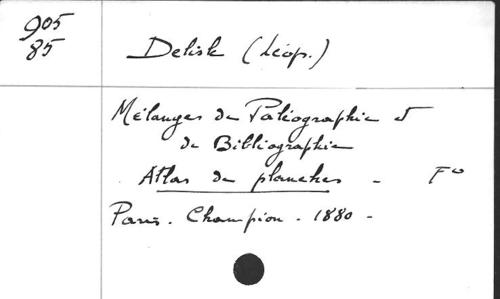 905
85
Delisle (Léop.)
Mélanges de Paléographie et
de Bibliographie
Atlas de planches - Fº
Paris. Champion. 1880 -